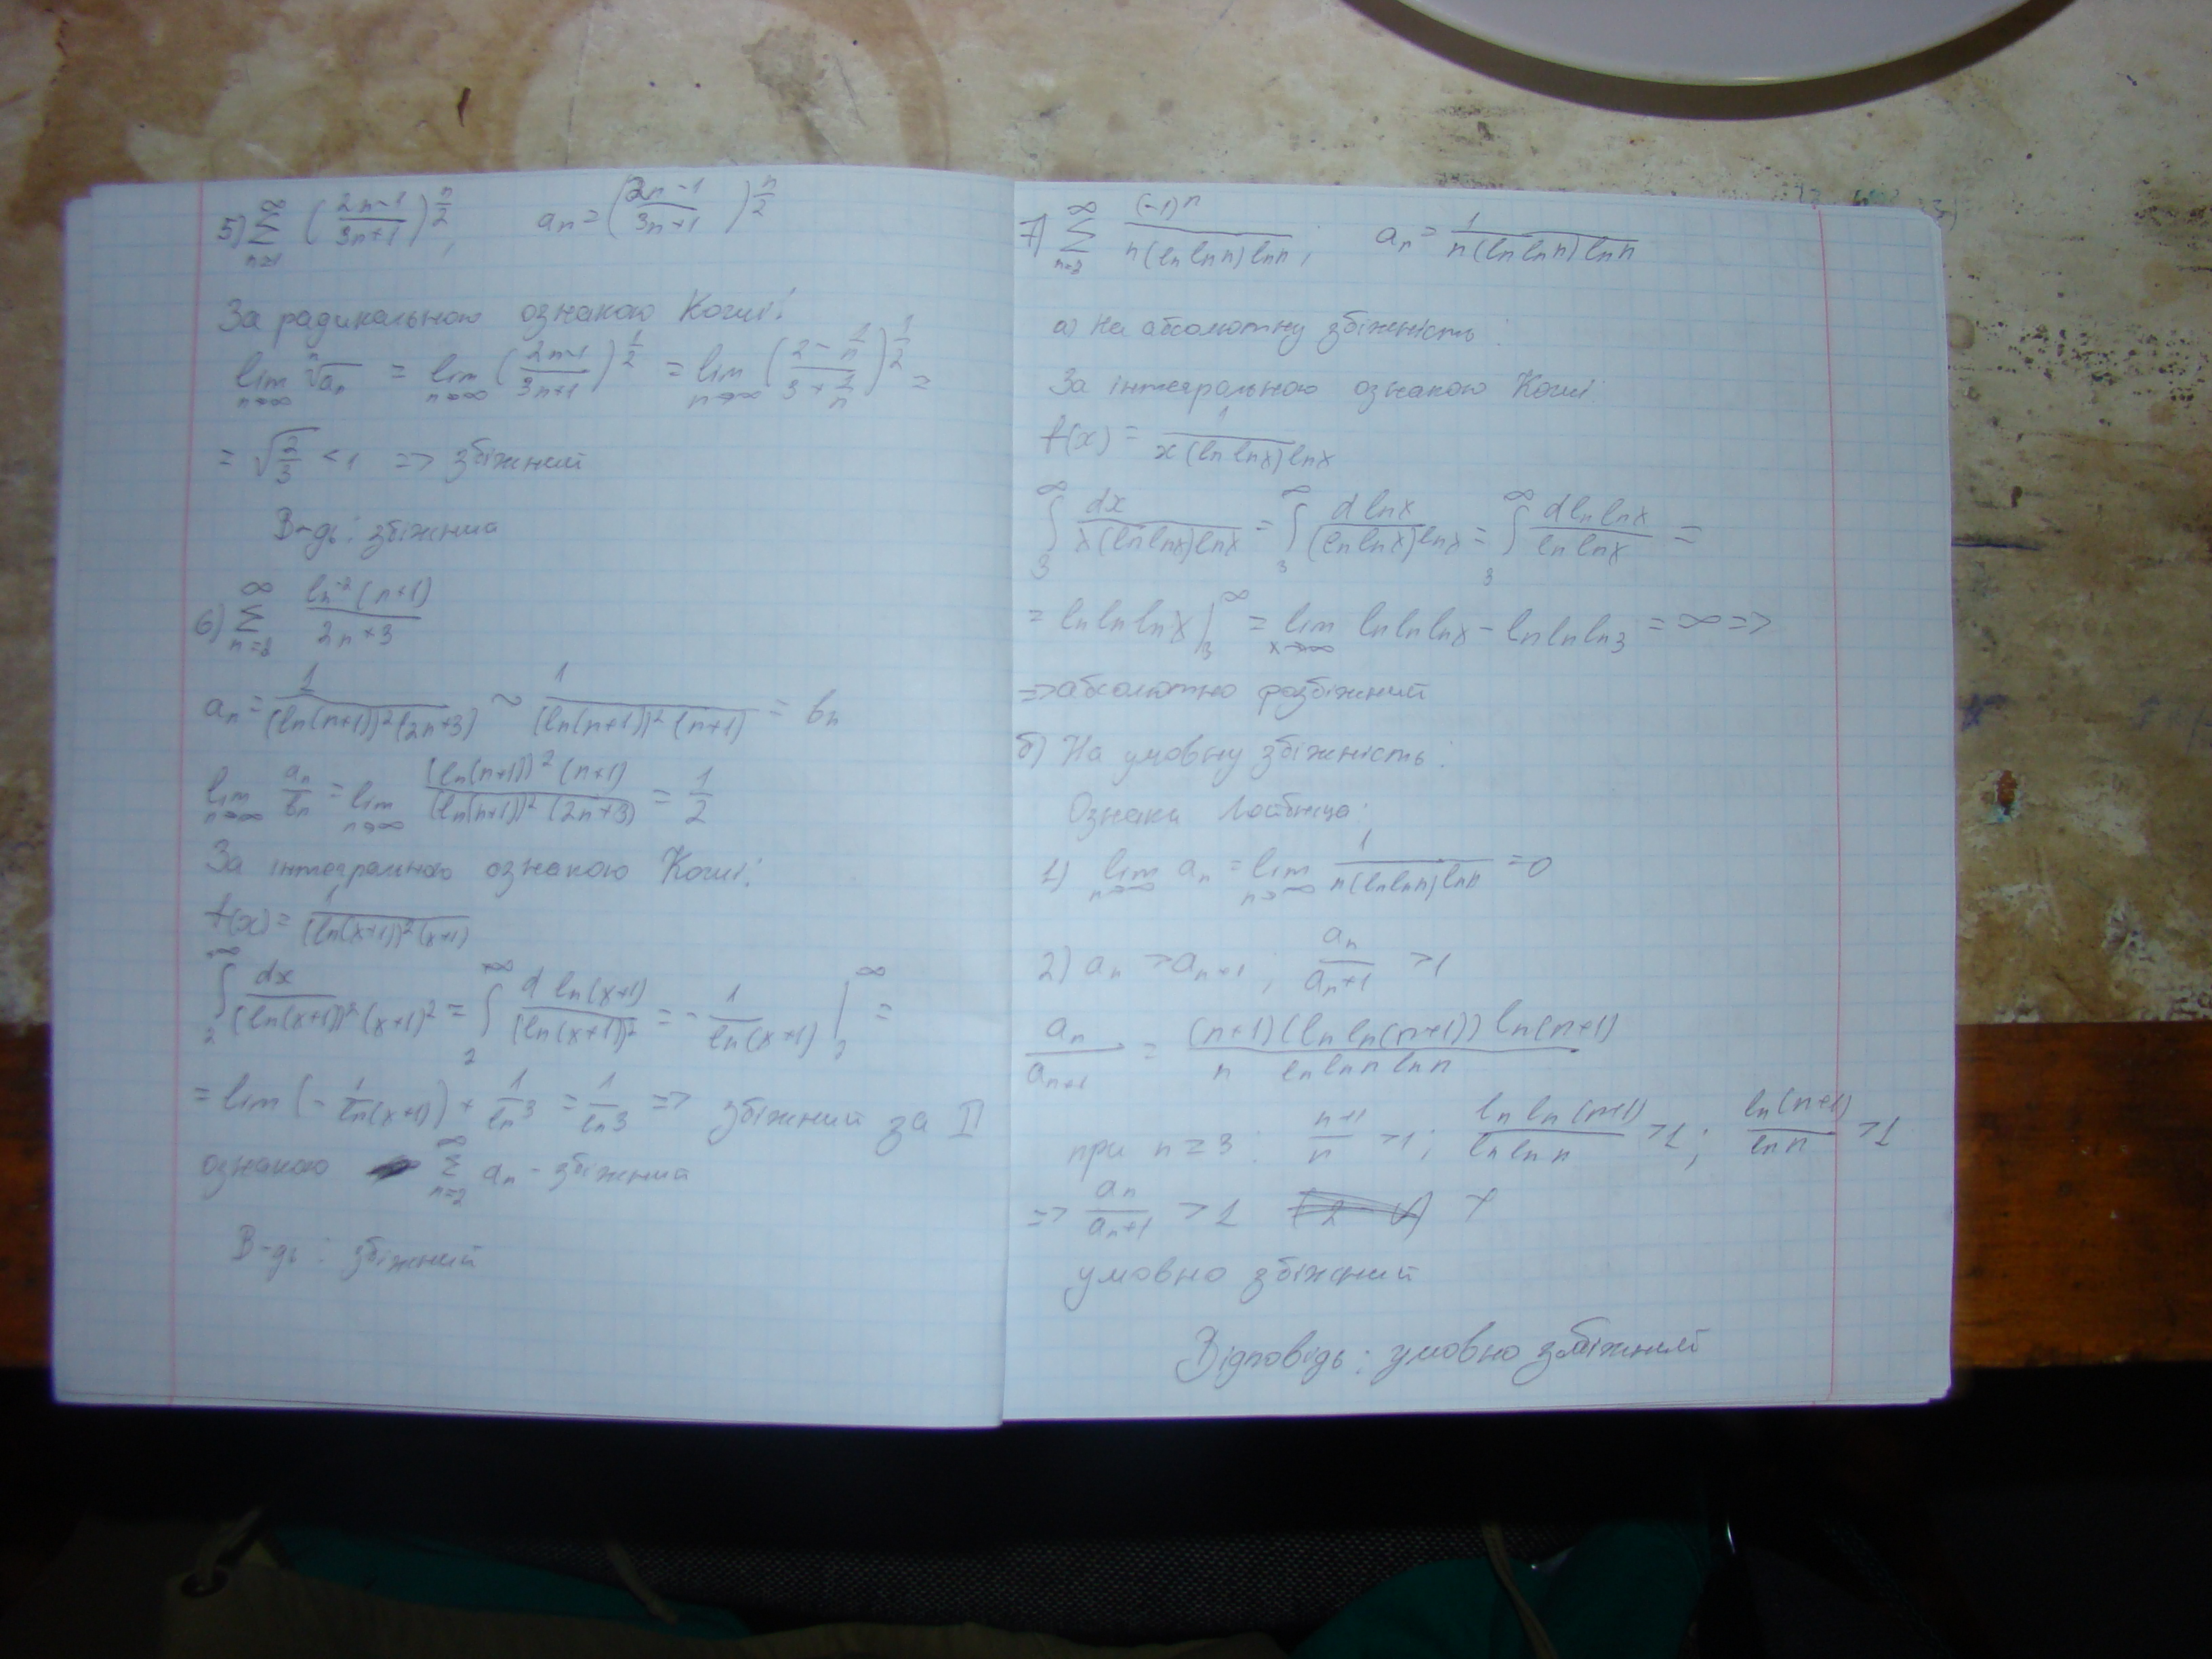 5) ∑_{n=1}^{∞} ((2n-1)/(3n+1))^{n/2}; a_n = ((2n-1)/(3n+1))^{n/2}
За радикальною ознакою Коші:
lim_{n→∞} ⁿ√a_n = lim_{n→∞} ((2n-1)/(3n+1))^{1/2} = lim_{n→∞} ((2 - 1/n)/(3 + 1/n))^{1/2} =
= √(2/3) < 1 => збіжний
В-дь: збіжний
6) ∑_{n=2}^{∞} ln^{-2}(n+1)/(2n+3)
a_n = 1/((ln(n+1))²(2n+3)) ~ 1/((ln(n+1))²(n+1)) = b_n
lim_{n→∞} a_n/b_n = lim_{n→∞} ((ln(n+1))²(n+1))/((ln(n+1))²(2n+3)) = 1/2
За інтегральною ознакою Коші:
f(x) = 1/((ln(x+1))²(x+1))
∫_{2}^{∞} dx/((ln(x+1))²(x+1)² = ∫_{2}^{∞} d ln(x+1)/(ln(x+1))² = - 1/ln(x+1) |_{2}^{∞} =
= lim (- 1/ln(x+1)) + 1/ln3 = 1/ln3 => збіжний за II
ознакою ∑_{n=2}^{∞} a_n - збіжний
В-дь: збіжний
7) ∑_{n=3}^{∞} (-1)^n/(n(ln ln n) ln n); a_n = 1/(n(ln ln n) ln n)
а) На абсолютну збіжність:
За інтегральною ознакою Коші:
f(x) = 1/(x(ln ln x) ln x)
∫_{3}^{∞} dx/(x(ln ln x) ln x) = ∫_{3}^{∞} d ln x/((ln ln x) ln x) = ∫_{3}^{∞} d ln ln x/(ln ln x) =
= ln ln ln x |_{3}^{∞} = lim_{x→∞} ln ln ln x - ln ln ln 3 = ∞ =>
=> абсолютно розбіжний
б) На умовну збіжність:
Ознаки Лейбніца:
1) lim_{n→∞} a_n = lim_{n→∞} 1/(n(ln ln n) ln n) = 0
2) a_n > a_{n+1}; a_n/a_{n+1} > 1
a_n/a_{n+1} = ((n+1)(ln ln(n+1)) ln(n+1))/(n ln ln n ln n)
при n ≥ 3: (n+1)/n > 1; ln ln(n+1)/ln ln n > 1; ln(n+1)/ln n > 1
=> a_n/a_{n+1} > 1
умовно збіжний
Відповідь: умовно збіжний